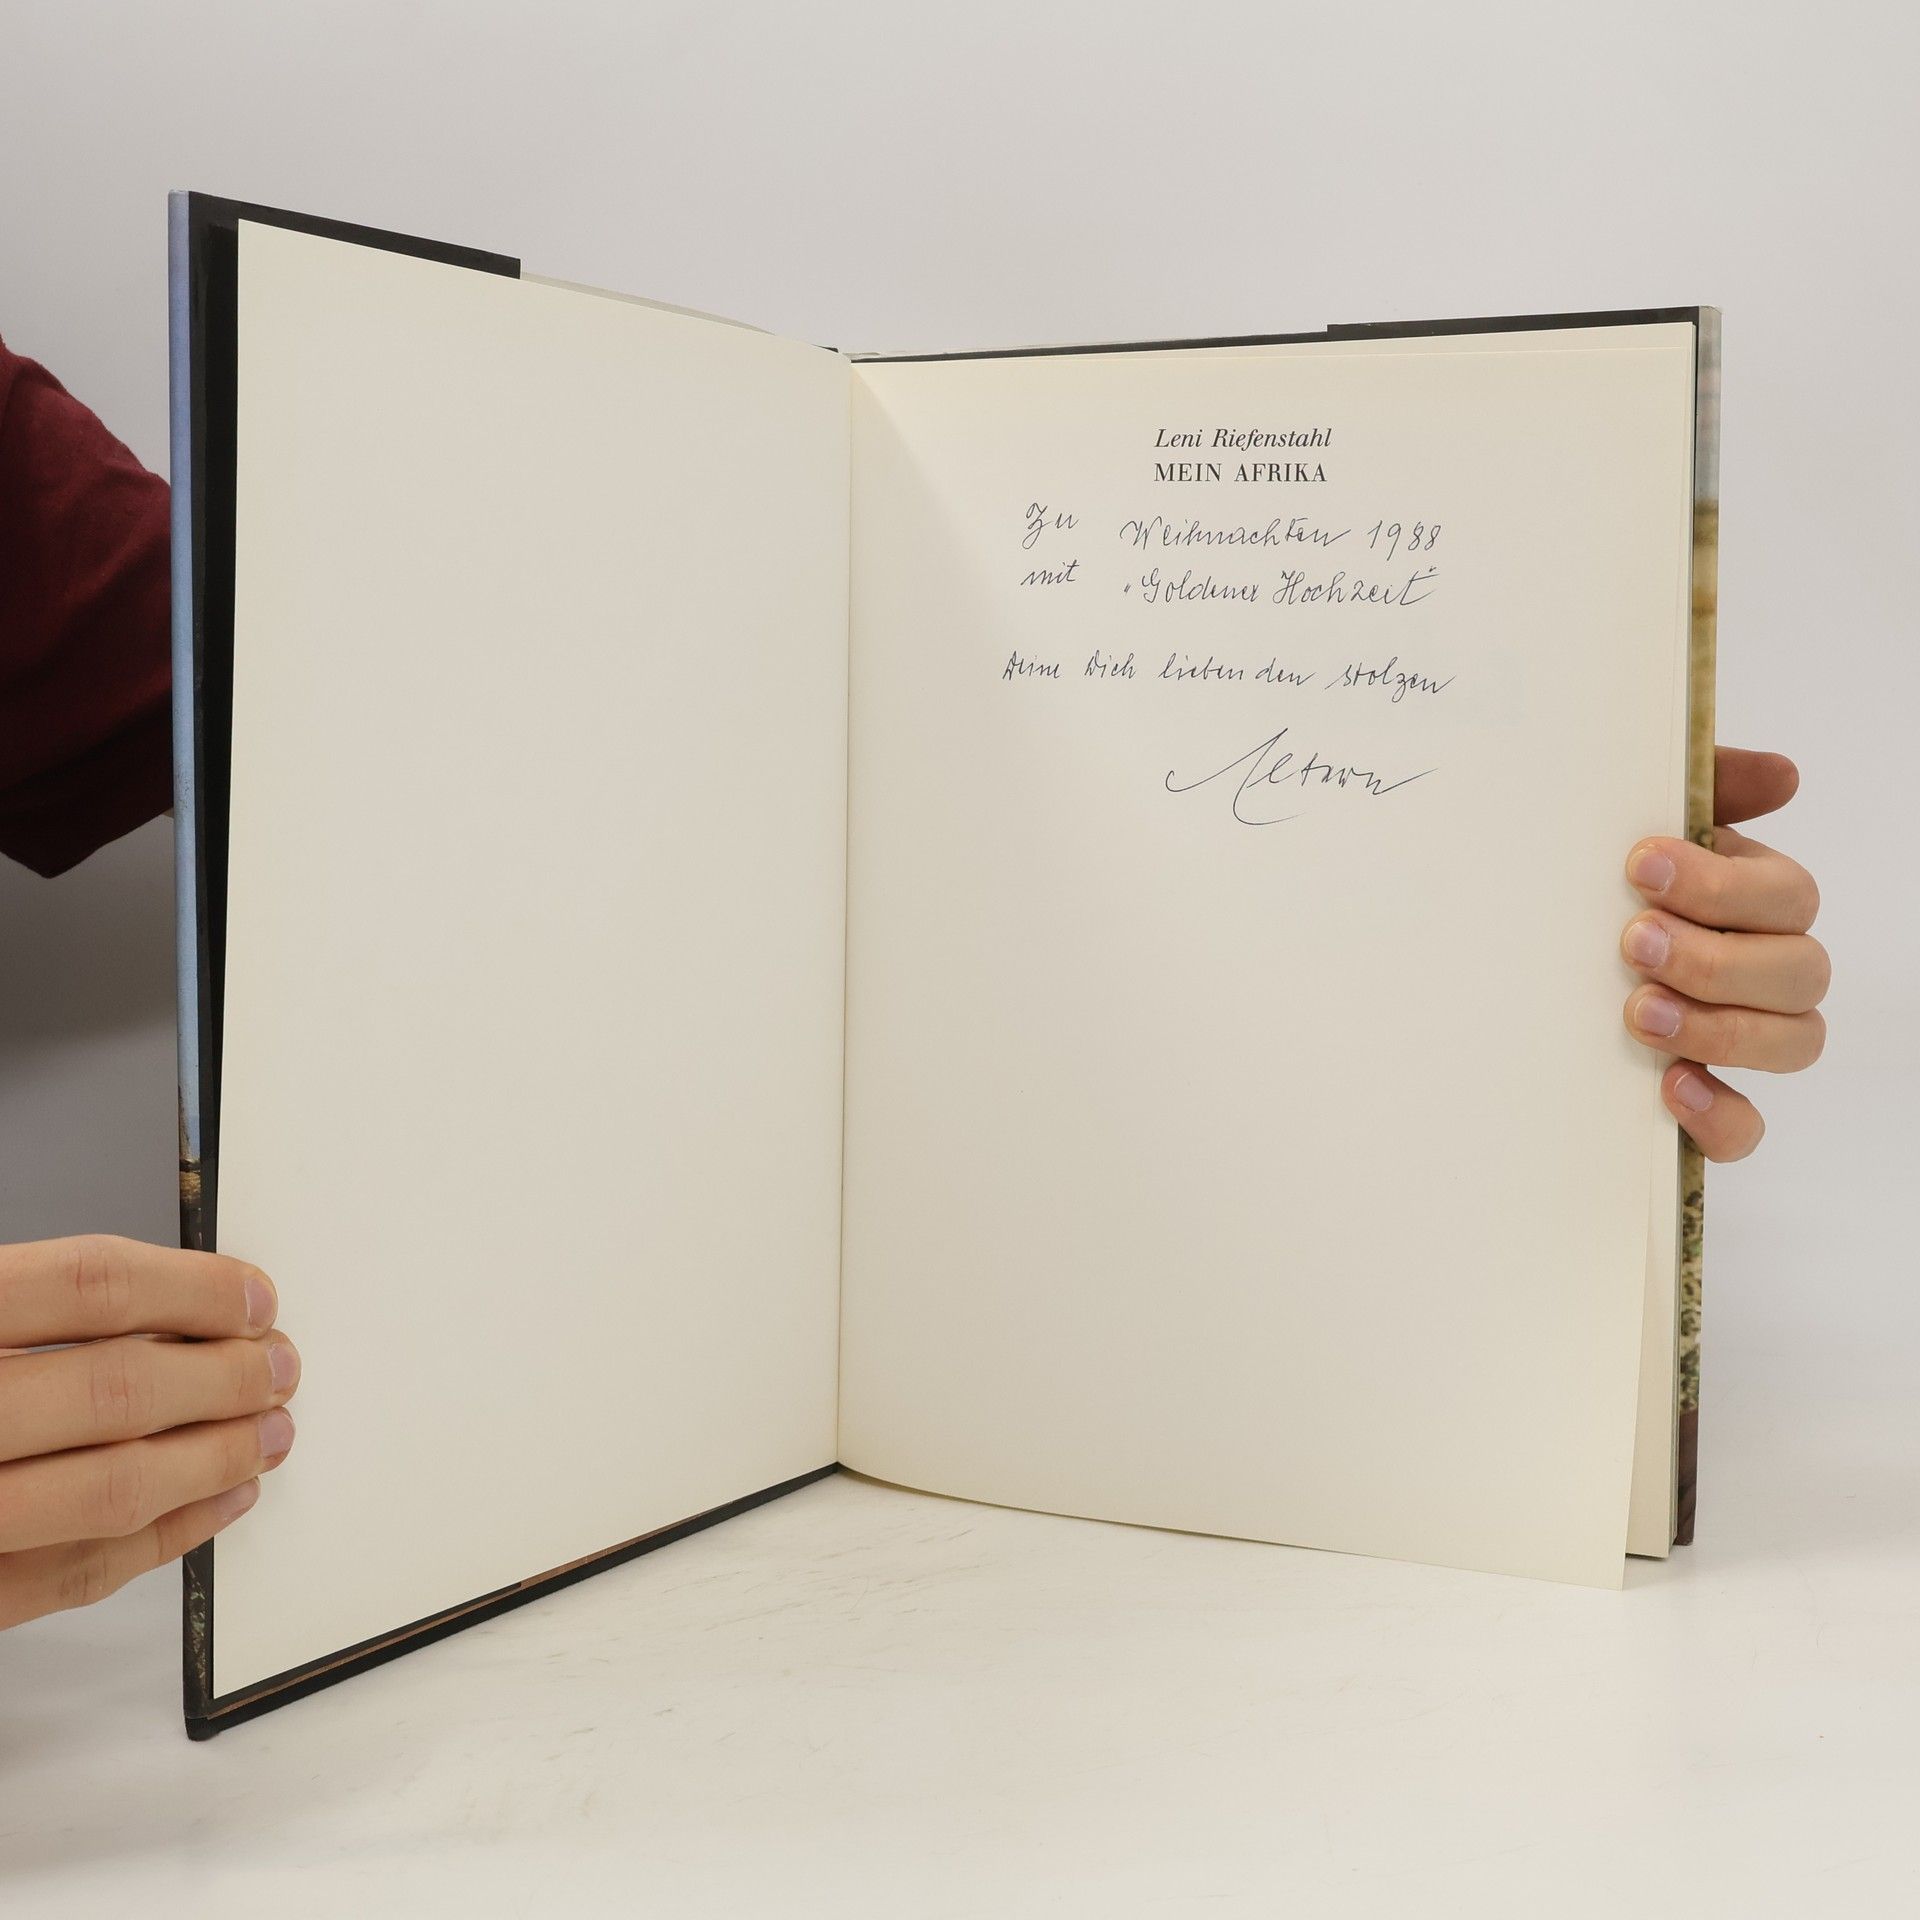 Leni Riefenstahl
MEIN AFRIKA
Zu Weihnachten 1988
mit "Goldener Hochzeit"
Deine Dich liebenden stolzen
Eltern